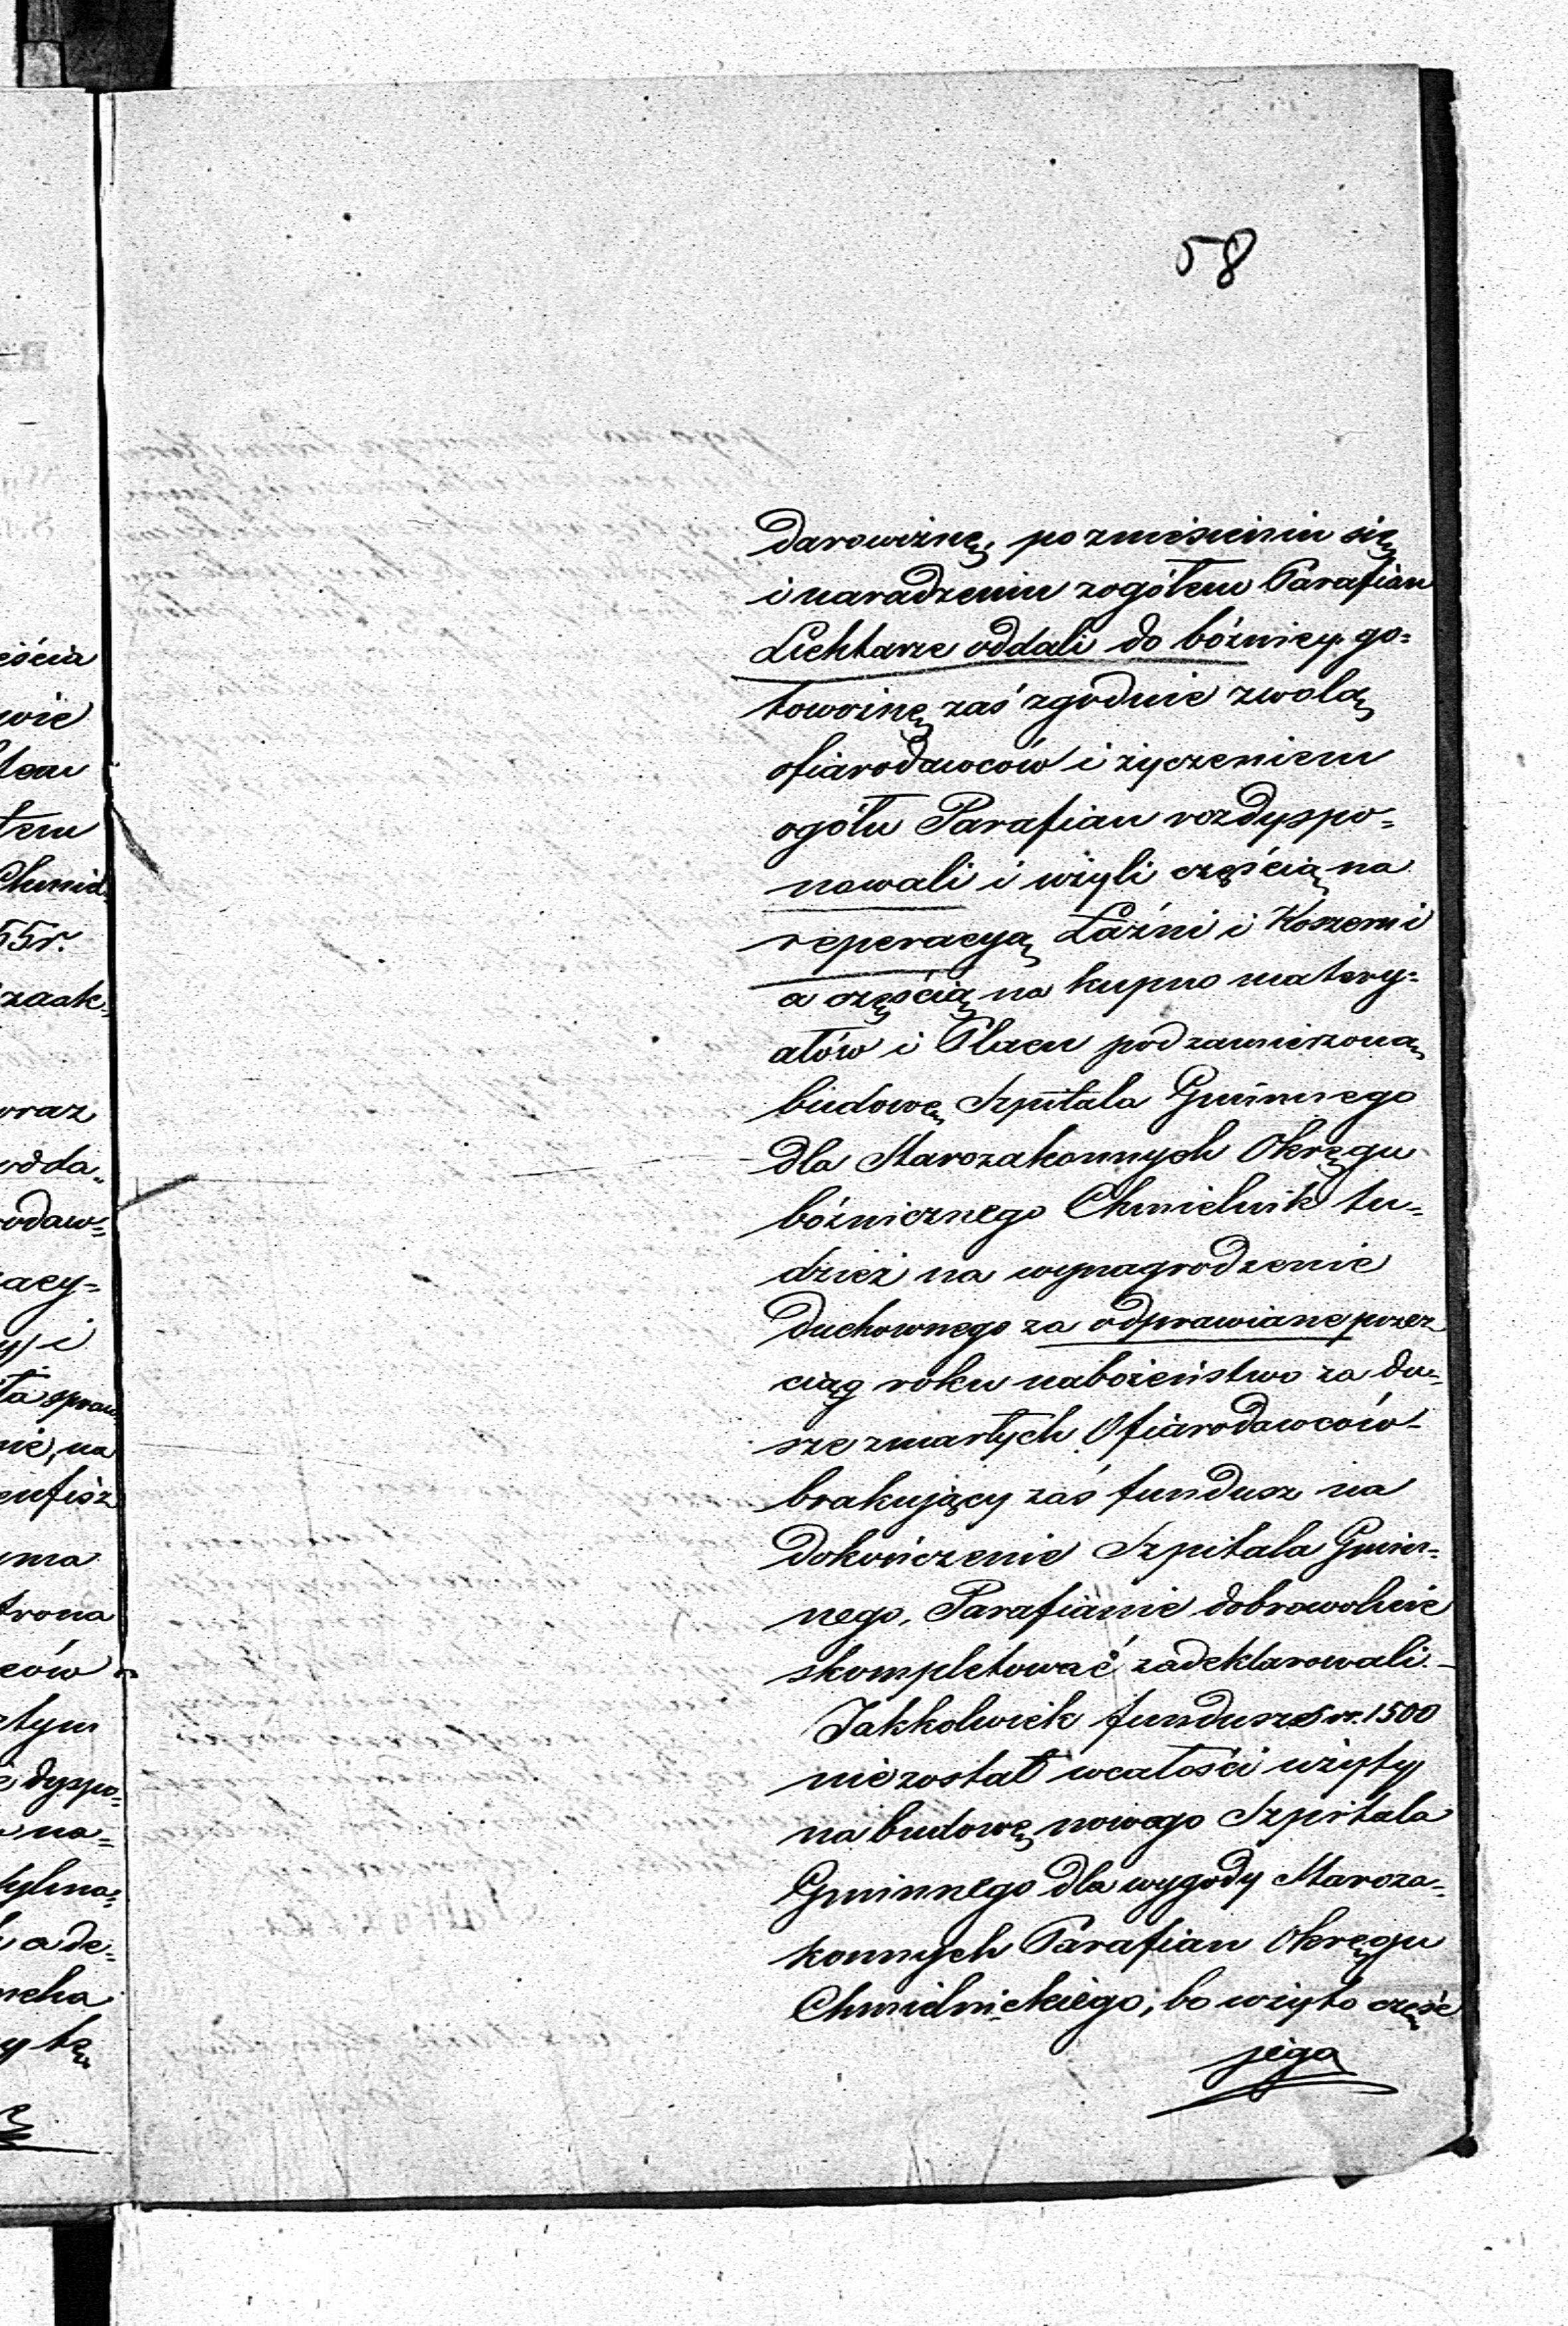 58
darowiznę, po zniesieniu się
i naradzeniu zogółem Parafian
Lichtarze oddali do bóżnicy, go=
towiznę zaś zgodnie zwolą
ofiarodawców i życzeniem
ogółu Parafian rozdyspo=
nowali i użyli częścią na
reperacyą Łaźni i Koszerni
a częścią na kupno matery=
ałów i Placu pod zamierzoną
budowę Szpitala Gminnego
dla Starozakonnych Okręgu
bóżnicznego Chmielnik tu=
dzież na wynagrodzenie
Duchownego za odprawiane przez
ciąg roku nabożeństwo za du=
sze zmarłych Ofiarodawców-
brakujący zaś fundusz na
dokończenie Szpitala Gmin=
nego, Parafianie dobrowolnie
skompletować zadeklarowali.-
Jakkolwiek fundusz Sr. 1500
nie został wcałości użyty
na budowę nowego Szpitala
Gminnego dla wygody Staroza=
konnych Parafian Okręgu
Chmielnickiego, bo użyto część
jego
eścia
wie
łem
Chmiel
55r.
zaak=
oraz
odda=
odaw=
acy=
y i
ta spraw
nie, na
ma
trona
ców
tym
dyspo=
na=
a de=
cha
y tę